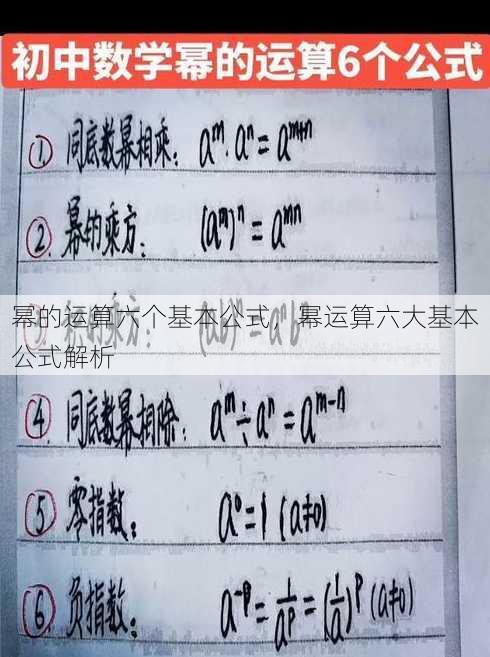 初中数学幂的运算6个公式
① 同底数幂相乘: aᵐ·aⁿ=aᵐ⁺ⁿ
② 幂的乘方: (aᵐ)ⁿ=aᵐⁿ
③ 积的乘方: (ab)ⁿ=aⁿbⁿ
幂的运算六个基本公式，幂运算六大基本
公式解析
④ 同底数幂相除: aᵐ÷aⁿ=aᵐ⁻ⁿ
⑤ 零指数: a⁰=1 (a≠0)
⑥ 负指数: a⁻ᵖ=1/aᵖ=(1/a)ᵖ (a≠0)